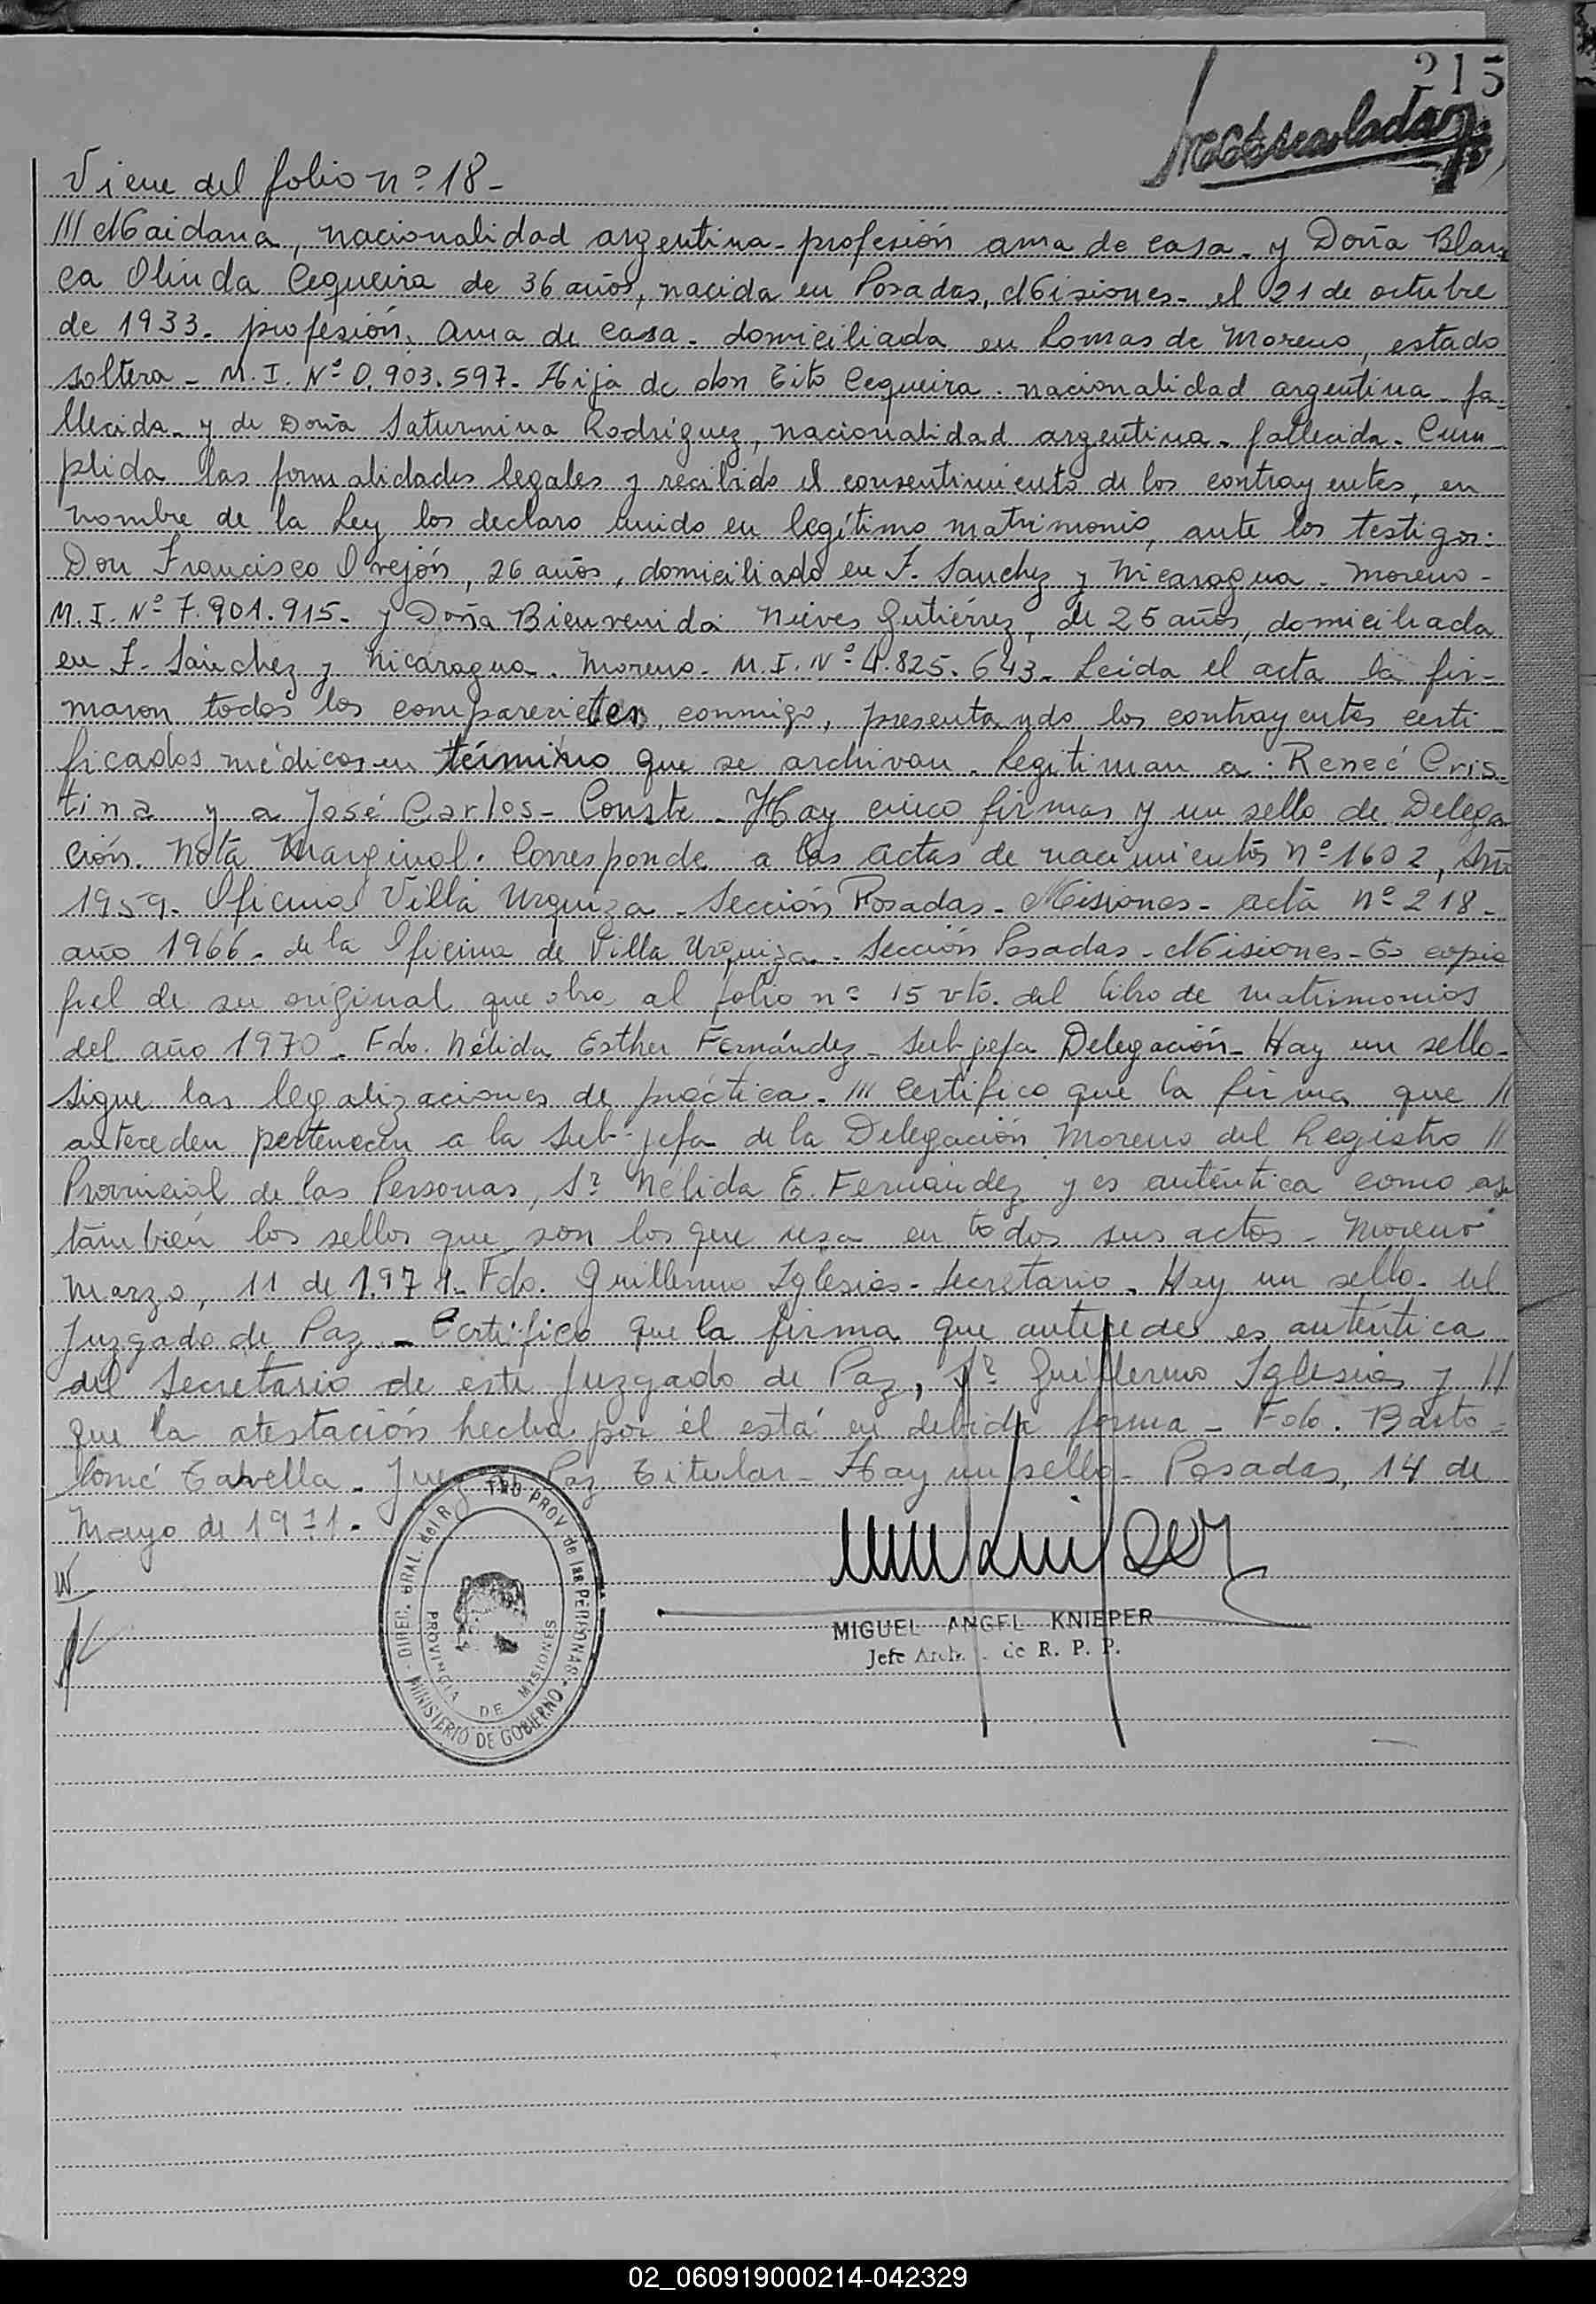 215
Viene del folio nº 18-
/// Maidana, nacionalidad argentina- profesión ama de casa- y Doña Blan
ca Olinda Cequeira de 36 años, nacida en Posadas, Misiones- el 21 de octubre
de 1933- profesión, ama de casa- domiciliada en Lomas de Moreno, estado
soltera- M.I. Nº 0.903.597- Hija de don Tito Cequeira- nacionalidad argentina- fa-
llecida- y de Doña Saturnina Rodríguez, nacionalidad argentina- fallecida- Cum
plida las formalidades legales y recibido el consentimiento de los contrayentes, en
nombre de la Ley los declaro unido en legítimo matrimonio, ante los testigos:
Don Francisco Orejón, 26 años, domiciliado en F. Sanchez y Nicaragua- Moreno-
M.I. Nº 7.901.915- y Doña Bienvenida Nieves Gutiérrez, de 25 años, domiciliada
en F. Sánchez y Nicaragua- Moreno- M.I. Nº 4.825.643- Leída el acta la fir-
maron todos los comparecietes, conmigo, presentando los contrayentes certi-
ficados médicos en término que se archivan- Legitiman a: Reneé Cris-
tina y a José Carlos- Conste- Hay cinco firmas y un sello de Delega
ción. Nota Marginal: Corresponde a las actas de nacimientos nº 1602, Año
1959- Oficina Villa Urquiza- Sección Posadas- Misiones- acta nº 218-
año 1966- de la Oficina de Villa Urquiza- Sección Posadas- Misiones- Es copia
fiel de su original que obra al folio nº 15 vto. del libro de matrimonios
del año 1970- Fdo. Nélida Esther Fernández- Sub-jefa Delegación- Hay un sello-
Sigue las legalizaciones de práctica- /// Certifico que la firma que //
anteceden pertenecen a la Sub-jefa de la Delegación Moreno del Registro //
Provincial de las Personas, Sª Nélida E. Fernández y es auténtica como así
también los sellos que son los que usa en todos sus actos- Moreno
Marzo, 11 de 1.971- Fdo. Guillermo Iglesias- Secretario- Hay un sello- del
Juzgado de Paz- Certifico que la firma que antecede es auténtica
del Secretario de este Juzgado de Paz, Sº Guillermo Iglesias y //
que la atestación hecha por él está en debida forma- Fdo. Barto-
lomé Tavella- Juez Paz Titular- Hay un sello- Posadas, 14 de
Mayo de 1971-
DIREC. GRAL. del R TRO PROV. de las PERSONAS
MINISTERIO DE GOBIERNO
PROVINCIA DE MISIONES
MIGUEL ANGEL KNIEPER
Jefe Arch. de R. P. P.
02_060919000214-042329